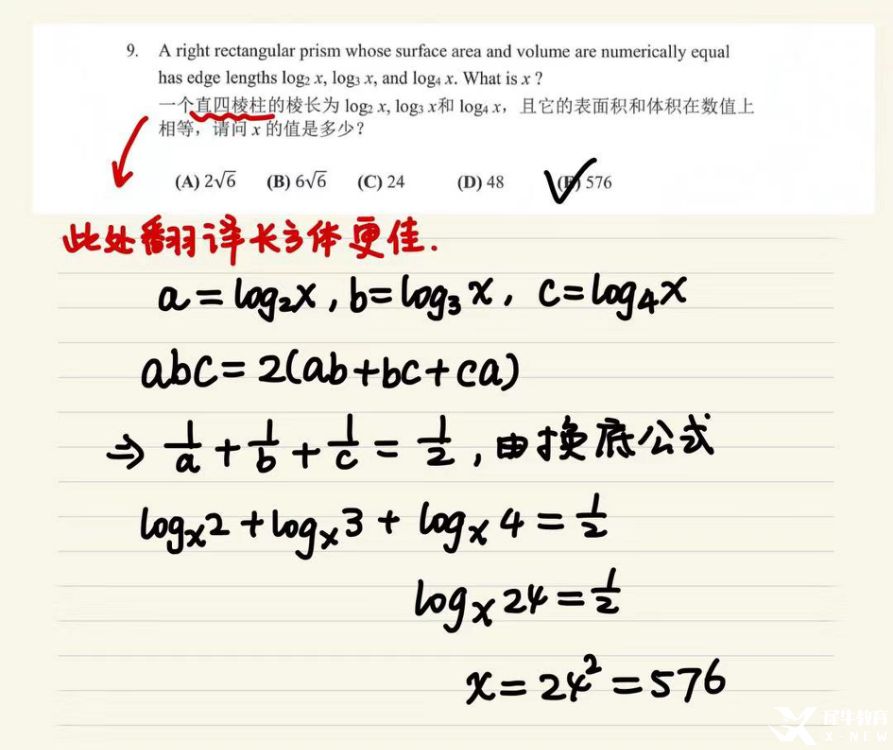 9. A right rectangular prism whose surface area and volume are numerically equal
has edge lengths log₂ x, log₃ x, and log₄ x. What is x ?
一个直四棱柱的棱长为 log₂ x, log₃ x和 log₄ x，且它的表面积和体积在数值上
相等，请问 x 的值是多少？
(A) 2√6 (B) 6√6 (C) 24 (D) 48 (E) 576
此处翻译长方体更佳.
a = log₂x , b = log₃x , c = log₄x
abc = 2(ab+bc+ca)
⇒ 1/a + 1/b + 1/c = 1/2 , 由换底公式
logₓ2 + logₓ3 + logₓ4 = 1/2
logₓ24 = 1/2
x = 24² = 576
犀牛教育
X-NEW